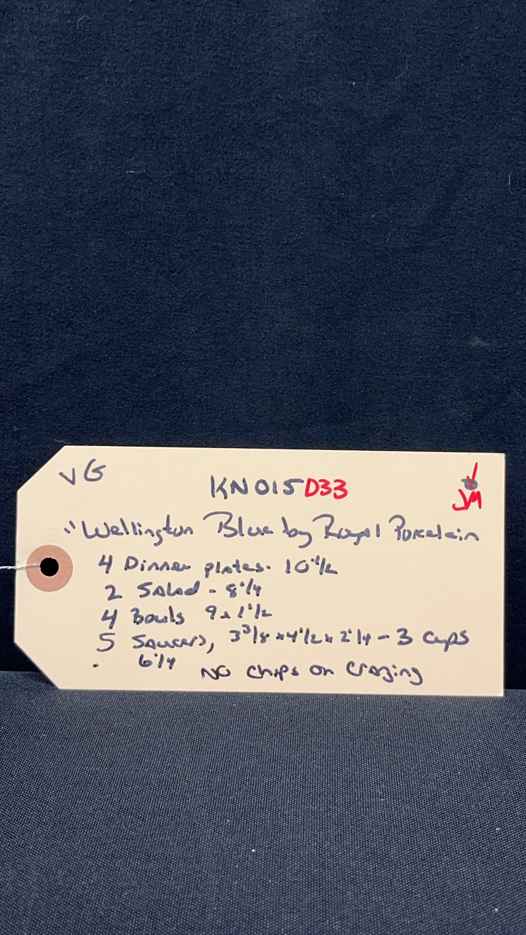 VG
KN015D33
JM
"Wellington Blue by Royal Porcelain
4 Dinner plates - 10 1/2
2 Salad - 8 1/4
4 Bowls 9 x 1 1/2
5 Saucers, 3 3/8 x 4 1/2 x 2 1/4 - 3 cups
6 1/4
NO chips or crazing